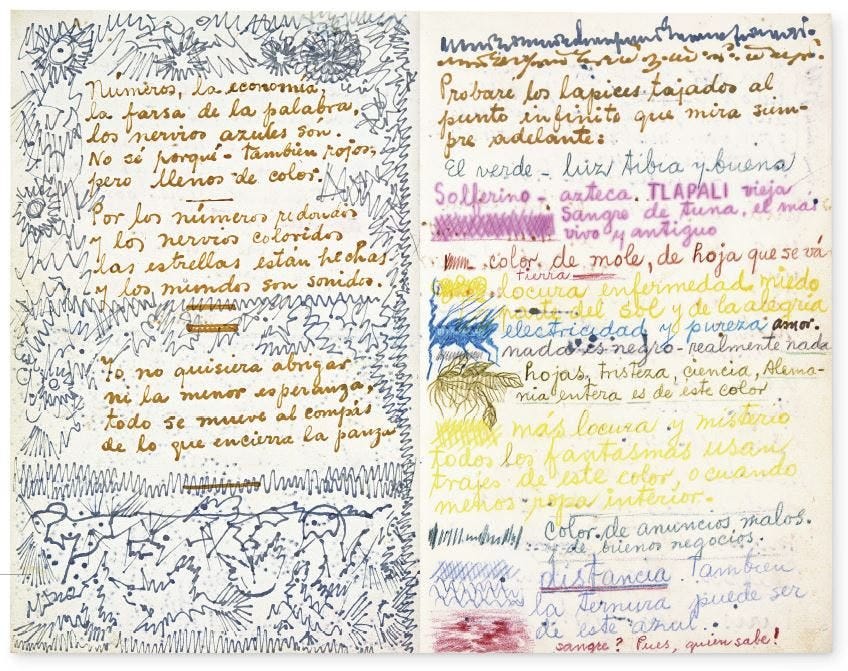 Números, la economía,
la farsa de la palabra,
los nervios azules són.
No sé porqué - tambien rojos,
pero llenos de color.
Por los números redondos
y los nervios coloridos
las estrellas estan hechas
y los mundos son sonidos.
Yo no quisiera abrigar
ni la menor esperanza,
todo se mueve al compás
de lo que encierra la panza
Probare los lapices tajados al
punto infinito que mira siem-
pre adelante:
El verde - luz tibia y buena
Solferino - azteca. TLAPALI vieja
sangre de tuna, el más
vivo y antiguo
color de mole, de hoja que se vá
tierra
locura enfermedad miedo
parte del sol y de la alegria
electricidad y pureza amor.
nada es negro - realmente nada
hojas, tristeza, ciencia, Alema-
nia entera es de este color
más locura y misterio
todos los fantasmas usan
trajes de este color, o cuando
menos ropa interior.
color de anuncios malos.
y de buenos negocios.
distancia. Tambien
la ternura puede ser
de este azul
sangre? Pues, quien sabe!